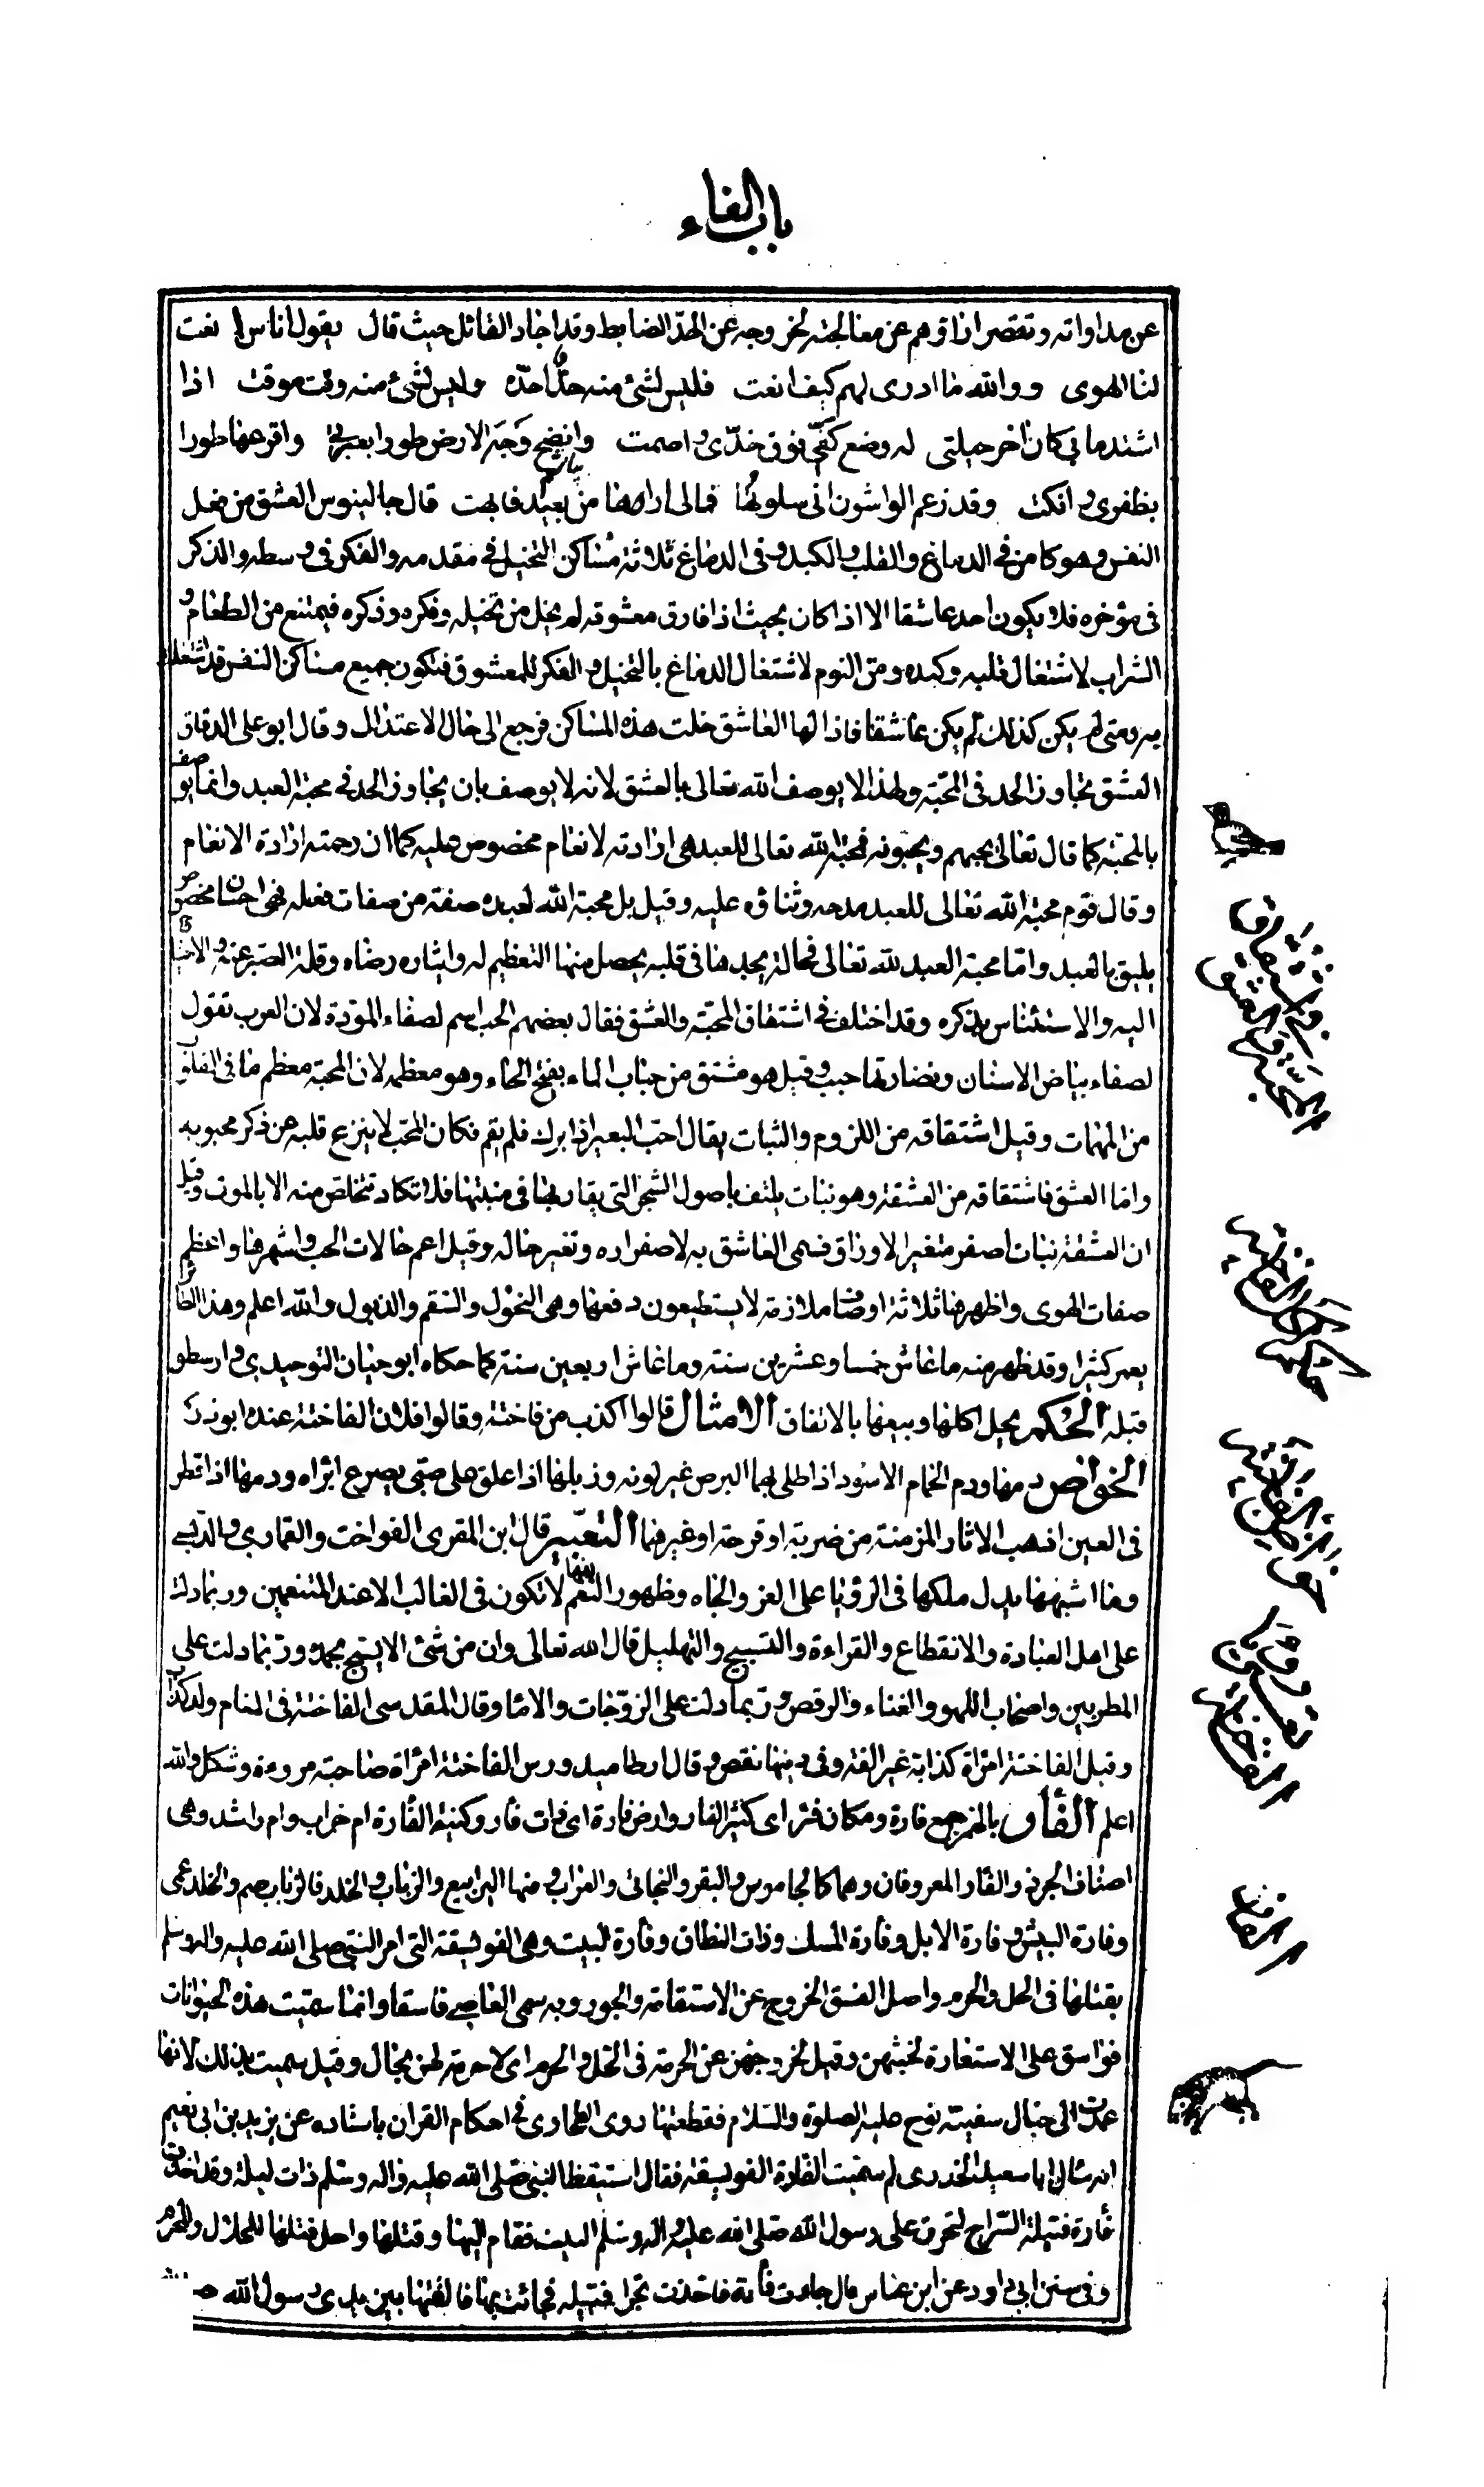 باب الفاء
عن مداواته وتقصر اذا قوهم عن معالجته لخروجه عن الحد الضابط وقد اجاد القائل حيث قال يقول اناس لو نعت
لنا الهوى ووالله ما ادرى لهم كيف انعت فليس لشئ منه حد احده وليس لشئ منه وقت موقت اذا
اشتد ما بي كان اخر حيلتى له وضع كفى فوق خدى واصمت وانضح وجه الارض طورا بعبرتى واقرعها طورا
بظفرى وانكت وقد زعم الواشون انى سلوتها فمالى اراها من بعيد فابهت قال جالينوس العشق من فعل
النفس وهو كامن فى الدماغ والقلب والكبد وفى الدماغ ثلاثة مساكن التخيل فى مقدمه والفكر فى وسطه والذكر
فى مؤخره فلا يكون احد عاشقا الا اذا كان بحيث اذا فارق معشوقه لم يخل من تخيله وفكره وذكره فيمتنع من الطعام و
الشراب لاشتغال قلبه وكبده ومن النوم لاشتغال الدماغ بالتخيل والفكر للمعشوق فتكون جميع مساكن النفس قد اشتغلت
به ومتى لم يكن كذلك لم يكن عاشقا فاذا لها العاشق خلت هذه المساكن فرجع الى حال الاعتدال وقال ابو على الدقاق
العشق تجاوز الحد فى المحبة ولهذا لا يوصف الله تعالى بالعشق لانه لا يوصف بان يجاوز الحد فى محبة العبد وانما يوصف
بالمحبة كما قال تعالى يحبهم ويحبونه فمحبة الله تعالى للعبد هى ارادته لانعام مخصوص عليه كما ان رحمته ارادة الانعام
وقال قوم محبة الله تعالى للعبد مدحه وثناؤه عليه وقيل بل محبة الله لعبده صفة من صفات فعله فهى احسان مخصوص
يليق بالعبد واما محبة العبد لله تعالى فحالة يجدها فى قلبه يحصل منها التعظيم له وايثاره رضاه وقلة الصبر عنه والاحتياج
اليه والاستئناس بذكره وقد اختلف فى اشتقاق المحبة والعشق فقال بعضهم الحب اسم لصفاء المودة لان العرب تقول
لصفاء بياض الاسنان ونضارتها حبب وقيل هو مشتق من حباب الماء بفتح الحاء وهو معظمه لان المحبة معظم ما فى القلب
من المهمات وقيل اشتقاقه من اللزوم والثبات يقال احب البعير اذا برك فلم يقم فكان المحب لا ينزع قلبه عن ذكر محبوبه
واما العشق فاشتقاقه من العشقة وهو نبات يلتف باصول الشجر التى يقاربها فى منبتها فلا تكاد تتخلص منه الا بالموت وقيل
ان العشقة نبات اصفر متغير الاوراق فسمى العاشق به لاصفراره وتغير حاله وقيل اعم حالات الحب واشهرها واعظم
صفات الهوى واظهرها ثلاثة اوصاف ملازمة لا يستطيعون دفعها وهى النحول والسقم والذبول والله اعلم وهذا الطائر
يعمر كثيرا وقد ظهر منه ما عاش خمسا وعشرين سنة وما عاش اربعين سنة كما حكاه ابو حيان التوحيدى وارسطو
قبله الحكم يحل اكلها وبيعها بالاتفاق الامثال قالوا اكذب من فاختة وقالوا فلان الفاختة عنده ابو ذر
الخواص دمها ودم الحمام الاسود اذا طلى بهما البرص غير لونه وزبلها اذا علق على صبى يصرع ابراه ودمها اذا قطر
فى العين اذهب الاثار المزمنة من ضربة او قرحة او غيرهما التعبير قال ابن المقرى الفواخت والقمارى والدبسى
وما اشبهها يدل ملكها فى الرؤيا على العز والجاه وظهور النعم لانها لا تكون فى الغالب الا عند المتنعمين وربما دلت
على اهل العبادة والانقطاع والقراءة والتسبيح والتهليل قال الله تعالى وان من شئ الا يسبح بحمده وربما دلت على
المطربين واصحاب اللهو والغناء والرقص وربما دلت على الزوجات والاماء وقال المقدسى الفاختة فى المنام ولد كذاب
وقيل الفاختة امراة كذابة غير الفة وفى دينها نقص وقال ارطاميدورس الفاختة امراة صاحبة مروءة وشكل والله
اعلم الفأر بالهمز جمع فارة ومكان فئر اى كثير الفار وارض فارة اى ذات فار وكنية الفارة ام خراب وام راشد وهى
اصناف الجرذ والفأر المعروفان وهما كالجاموس والبقر والبخاتى والعراب ومنها اليرابيع والزباب والخلد فالزباب صم والخلد عمى
وفارة البيش وفارة الابل وفارة المسك وذات النطاق وفارة البيت وهى الفويسقة التى امر النبى صلى الله عليه واله وسلم
بقتلها فى الحل والحرم واصل الفسق الخروج عن الاستقامة والجور وبه سمى العاصى فاسقا وانما سميت هذه الحيوانات
فواسق على الاستعارة لخبثهن وقيل لخروجهن عن الحرمة فى الحل والحرم اى لا حرمة لهن بحال وقيل سميت بذلك لانها
عمدت الى حبال سفينة نوح عليه الصلوة والسلام فقطعتها روى الطحاوى فى احكام القران باسناده عن يزيد بن ابى نعيم
انه سال ابا سعيد الخدرى لم سميت الفارة الفويسقة فقال استيقظ النبى صلى الله عليه واله وسلم ذات ليلة وقد اخذت
فارة فتيلة السراج لتحرق على رسول الله صلى الله عليه واله وسلم البيت فقام اليها وقتلها واحل قتلها للحلال والمحرم
وفى سنن ابى داود عن ابن عباس قال جاءت فأرة فاخذت تجر الفتيلة فجاءت بها فالقتها بين يدى رسول الله
المحبة والعشق
حكم اكل الفاختة
خواص الفاختة
تعبير الفاختة
الفار